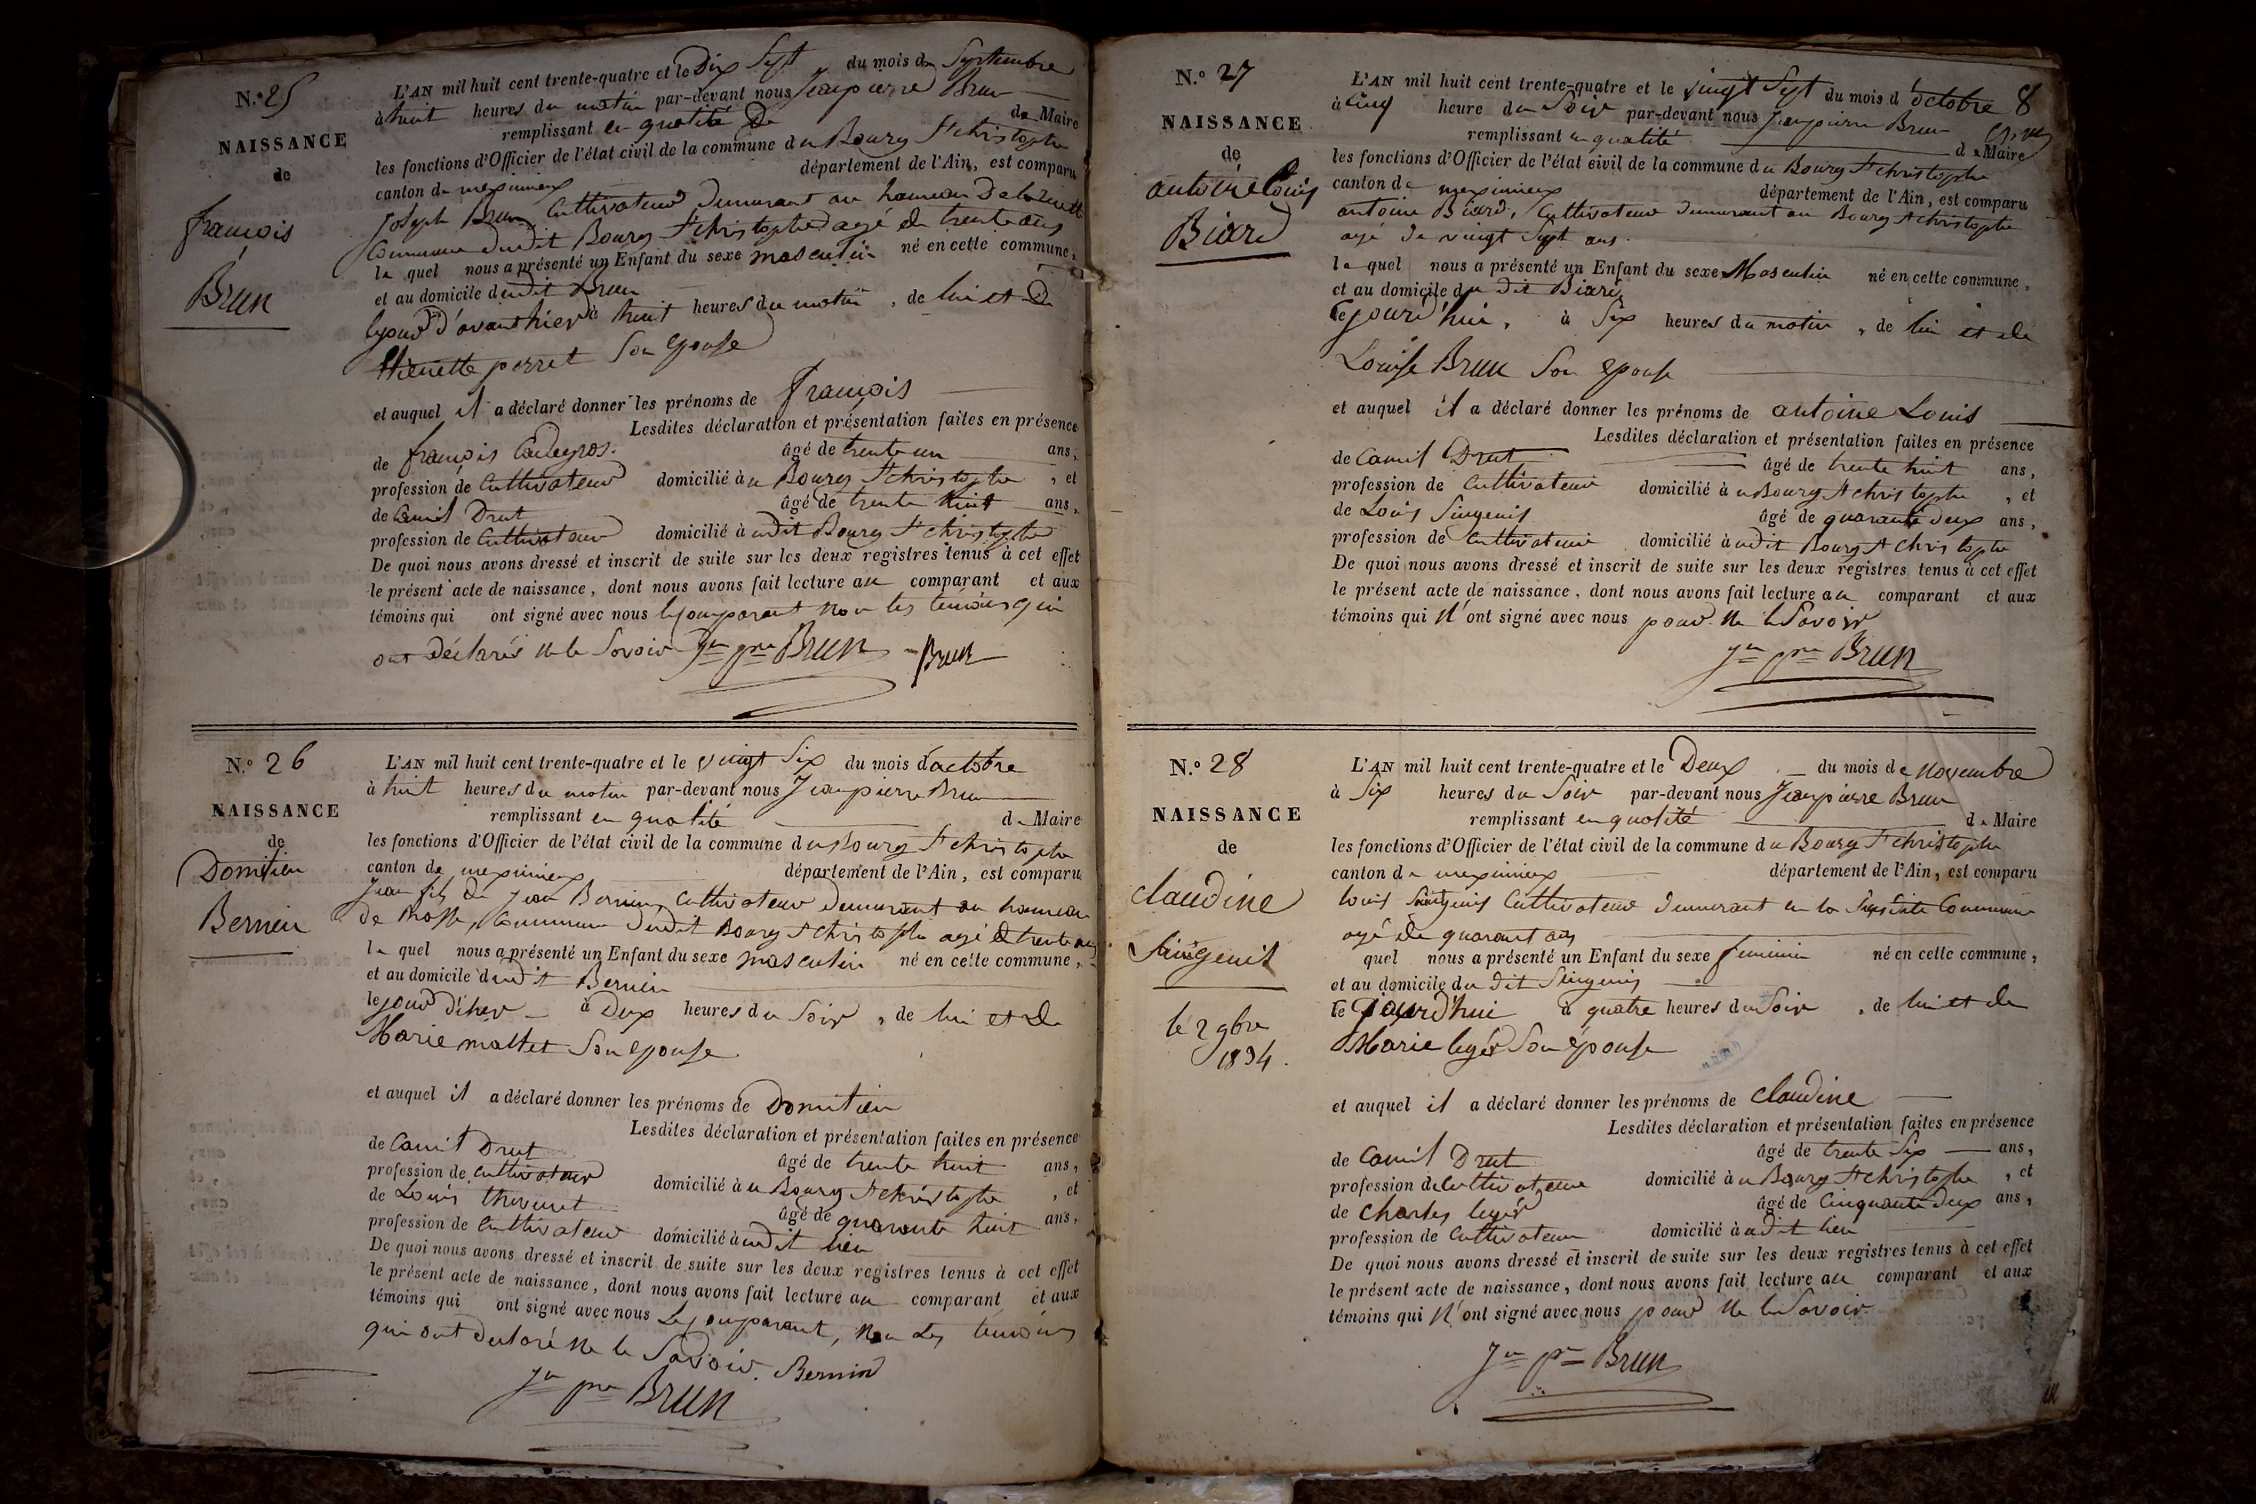 N.º 25
NAISSANCE
de
françois
Brun
L'AN mil huit cent trente-quatre et le Dix Sept du mois de Septembre
à huit heures du matin par-devant nous Jeanpierre Brun
remplissant en qualité De de Maire
les fonctions d'Officier de l'état civil de la commune du Bourg St christophe
canton de meximieux département de l'Ain, est comparu
Joseph Brun Cultivateur Demeurant au hameau De
Commune dudit Bourg St christophe agé de trente ans
le quel nous a présenté un Enfant du sexe masculin né en cette commune,
et au domicile dudit Brun
le jour d'avant hier à huit heures du matin, de lui et De
perret Son Epouse
et auquel il a déclaré donner les prénoms de françois
Lesdites déclaration et présentation faites en présence
de françois âgé de trente un ans,
profession de Cultivateur domicilié au Bourg St christophe, et
de Camil Drut âgé de trente huit ans,
profession de Cultivateur domicilié audit Bourg St christophe
De quoi nous avons dressé et inscrit de suite sur les deux registres tenus à cet effet
le présent acte de naissance, dont nous avons fait lecture au comparant et aux
témoins qui ont signé avec nous le comparant non les témoins qui
ont Déclarés ne le Savoir Jn pre Brun Brun
N.º 26
NAISSANCE
de
Domitien
Bernin
L'AN mil huit cent trente-quatre et le vingt Six du mois d'octobre
à huit heures du matin par-devant nous Jeanpierre Brun
remplissant en qualité de Maire
les fonctions d'Officier de l'état civil de la commune du Bourg St christophe
canton de meximieux département de l'Ain, est comparu
Jean fils de Jean Bernin, Cultivateur Demeurant au hameau
de Commune dudit Bourg St christophe agé de trente ans
le quel nous a présenté un Enfant du sexe masculin né en cette commune,
et au domicile dudit Bernin
le jour d'hier à Deux heures du Soir, de lui et De
Marie mallet Son epouse
et auquel il a déclaré donner les prénoms de Domitien
Lesdites déclaration et présentation faites en présence
de Camil Drut âgé de trente huit ans,
profession de Cultivateur domicilié au Bourg St christophe, et
de Louis thevenet âgé de quarante huit ans,
profession de Cultivateur domicilié audit lieu
De quoi nous avons dressé et inscrit de suite sur les deux registres tenus à cet effet
le présent acte de naissance, dont nous avons fait lecture au comparant et aux
témoins qui ont signé avec nous Le comparant, non Les témoins
qui ont declaré ne le Savoir. Bernin
Jn pre Brun
N.º 27
NAISSANCE
de
antoine Louis
Biard
8
L'AN mil huit cent trente-quatre et le vingt Sept du mois d'octobre
à cinq heure du Soir par-devant nous Jeanpierre Brun
remplissant en qualité de Maire
les fonctions d'Officier de l'état civil de la commune du Bourg St christophe
canton de meximieux département de l'Ain, est comparu
antoine Biard, Cultivateur demeurant au Bourg St christophe
agé de vingt Sept ans.
le quel nous a présenté un Enfant du sexe Masculin né en cette commune,
et au domicile du dit Biard
Ce jourd'hui, à Six heures du matin, de lui et de
Louise Brun Son epouse
et auquel il a déclaré donner les prénoms de antoine Louis
Lesdites déclaration et présentation faites en présence
de Camil Drut âgé de trente huit ans,
profession de Cultivateur domicilié au Bourg St christophe, et
de Louis Singenis âgé de quarante deux ans,
profession de Cultivateur domicilié audit Bourg St christophe
De quoi nous avons dressé et inscrit de suite sur les deux registres tenus à cet effet
le présent acte de naissance, dont nous avons fait lecture au comparant et aux
témoins qui n'ont signé avec nous pour ne le Savoir
Jn pre Brun
N.º 28
NAISSANCE
de
claudine
Le 2 9bre
1834.
L'AN mil huit cent trente-quatre et le Deux du mois de novembre
à Six heures du Soir par-devant nous Jeanpierre Brun
remplissant en qualité de Maire
les fonctions d'Officier de l'état civil de la commune du Bourg St christophe
canton de meximieux département de l'Ain, est comparu
Louis Cultivateur demeurant en la Susdite Commune
agé de quarant ans
quel nous a présenté un Enfant du sexe feminin né en cette commune,
et au domicile du dit Singenis
Ce jourd'hui à quatre heures du Soir, de lui et de
Marie leger Son épouse
et auquel il a déclaré donner les prénoms de claudine
Lesdites déclaration et présentation faites en présence
de Camil Drut âgé de trente Six ans,
profession de Cultivateur domicilié au Bourg St christophe, et
de Charles leger âgé de Cinquante deux ans,
profession de Cultivateur domicilié audit lieu
De quoi nous avons dressé et inscrit de suite sur les deux registres tenus à cet effet
le présent acte de naissance, dont nous avons fait lecture au comparant et aux
témoins qui n'ont signé avec nous pour ne le Savoir
Jn pre Brun